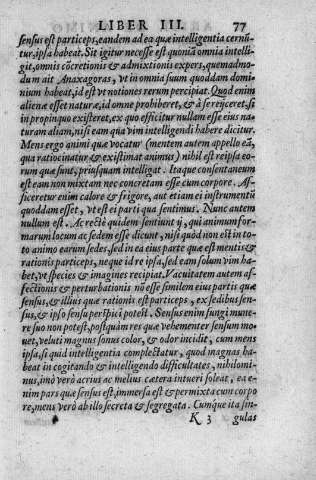 LIBER III. 77
sensus est particeps, eandem ad ea quæ intelligentia cernũ-
tur, ipsa habeat. Sit igitur necesse est quoniã omnia intelli-
git, omnis cõcretionis & admixtionis expers, quemadmo-
dum ait Anaxagoras, vt in omnia suum quoddam domi-
nium habeat, id est vt notiones rerum percipiat. Quod enim
alienæ esset naturæ, id omne prohiberet, & à se reijceret, si
in propinquo existeret, ex quo efficitur nullam esse eius na-
turam aliam, nisi eam qua vim intelligendi habere dicitur.
Mens ergo animi quæ vocatur (mentem autem appello eã,
qua ratiocinatur & existimat animus) nihil est reipsa eo-
rum quæ sunt, priusquam intelligat. Itaque consentaneum
est eam non mixtam nec concretam esse cum corpore. Af-
ficeretur enim calore & frigore, aut etiam ei instrumentũ
quoddam esset, vt est ei parti qua sentimus. Nunc autem
nullum est. Ac rectè quidem sentiunt ij, qui animum for-
marum locum ac sedem esse dicunt, nisi quod non est in to-
to animo earum sedes, sed in ea eius parte quæ est mentis &
rationis particeps, neque id re ipsa, sed eam solum vim ha-
bet, vt species & imagines recipiat. Vacuitatem autem af-
fectionis & perturbationis nõ esse similem eius partis quæ
sensus, & illius quæ rationis est particeps, ex sedibus sen-
sus, & ipso sensu perspici potest. Sensus enim fungi mune-
re suo non potest, postquàm res quæ vehementer sensum mo-
uet, veluti magnus sonus color, & odor incidit, cum mens
ipsa, si quid intelligentia complectatur, quod magnas ha-
beat in cogitando & intelligendo difficultates, nihilomi-
nus, imò verò acrius ac melius cætera intueri soleat, ea e-
nim pars quæ sensus est, immersa est & permixta cum corpo
re, mens verò ab illo secreta & segregata. Cumque ita sin-
K 3 gulas